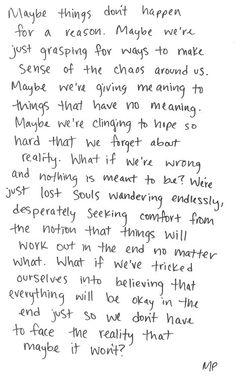 Maybe things don't happen
for a reason. Maybe we're
just grasping for ways to make
sense of the chaos around us.
Maybe we're giving meaning to
things that have no meaning.
Maybe we're clinging to hope so
hard that we forget about
reality. What if we're wrong
and nothing is meant to be? We're
just lost souls wandering endlessly,
desperately seeking comfort from
the notion that things will
work out in the end no matter
what. What if we've tricked
ourselves into believing that
everything will be okay in the
end just so we don't have
to face the reality that
maybe it won't?
MP